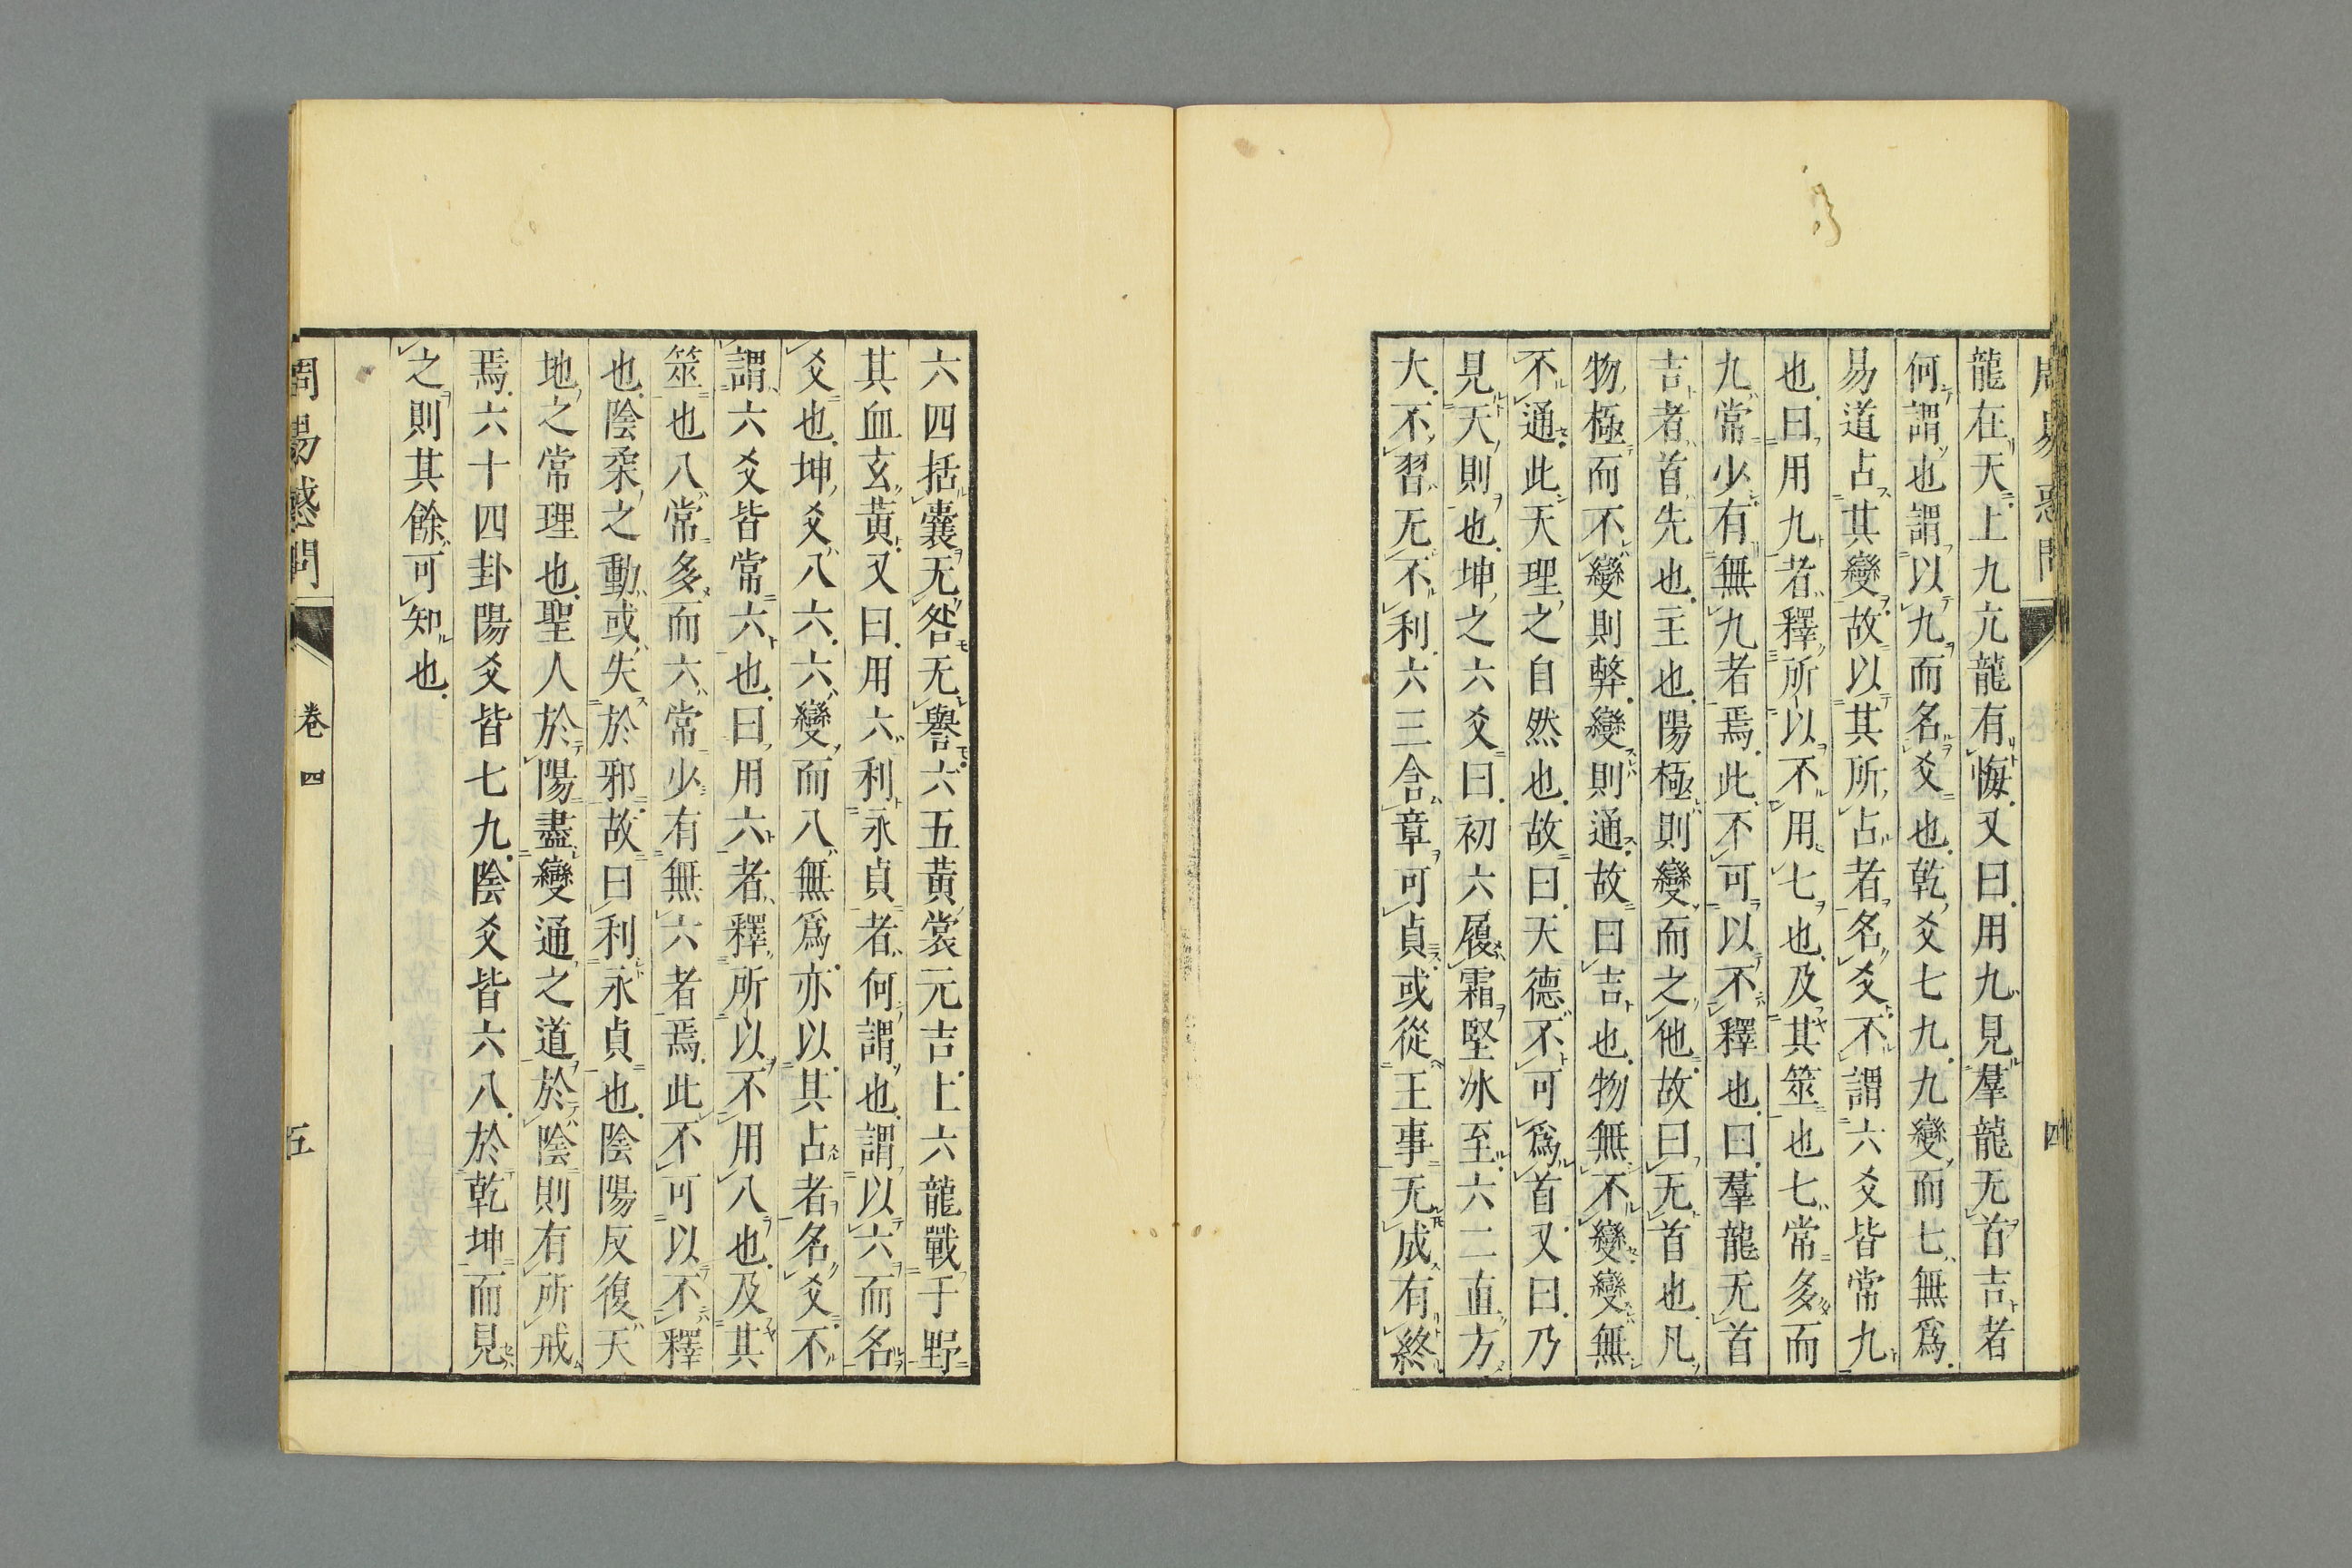 周易惑問
四
龍在天上九亢龍有悔又曰用九見羣龍无首吉者
何謂也謂以九而名爻也乾爻七九九變而七無爲
易道占其變故以其所占者名爻不謂六爻皆常九
也曰用九者釋所以不用七也及其筮也七常多而
九常少有無九者焉此不可以不釋也曰羣龍无首
吉者首先也主也陽極則變而之他故曰无首也凡
物極而不變則弊變則通故曰吉也物無不變變無
不通此天理之自然也故曰天德不可爲首又曰乃
見天則也坤之六爻曰初六履霜堅冰至六二直方
大不習无不利六三含章可貞或從王事无成有終
六四括囊无咎无譽六五黃裳元吉上六龍戰于野
其血玄黃又曰用六利永貞者何謂也謂以六而名
爻也坤爻八六六變而八無爲亦以其占者名爻不
謂六爻皆常六也曰用六者釋所以不用八也及其
筮也八常多而六常少有無六者焉此不可以不釋
也陰柔之動或失於邪故曰利永貞也陰陽反復天
地之常理也聖人於陽盡變通之道於陰則有所戒
焉六十四卦陽爻皆七九陰爻皆六八於乾坤而見
之則其餘可知也
周易惑問
卷四
五